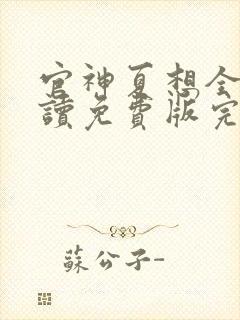 官神夏想全
讀免費版完
蘇公子-